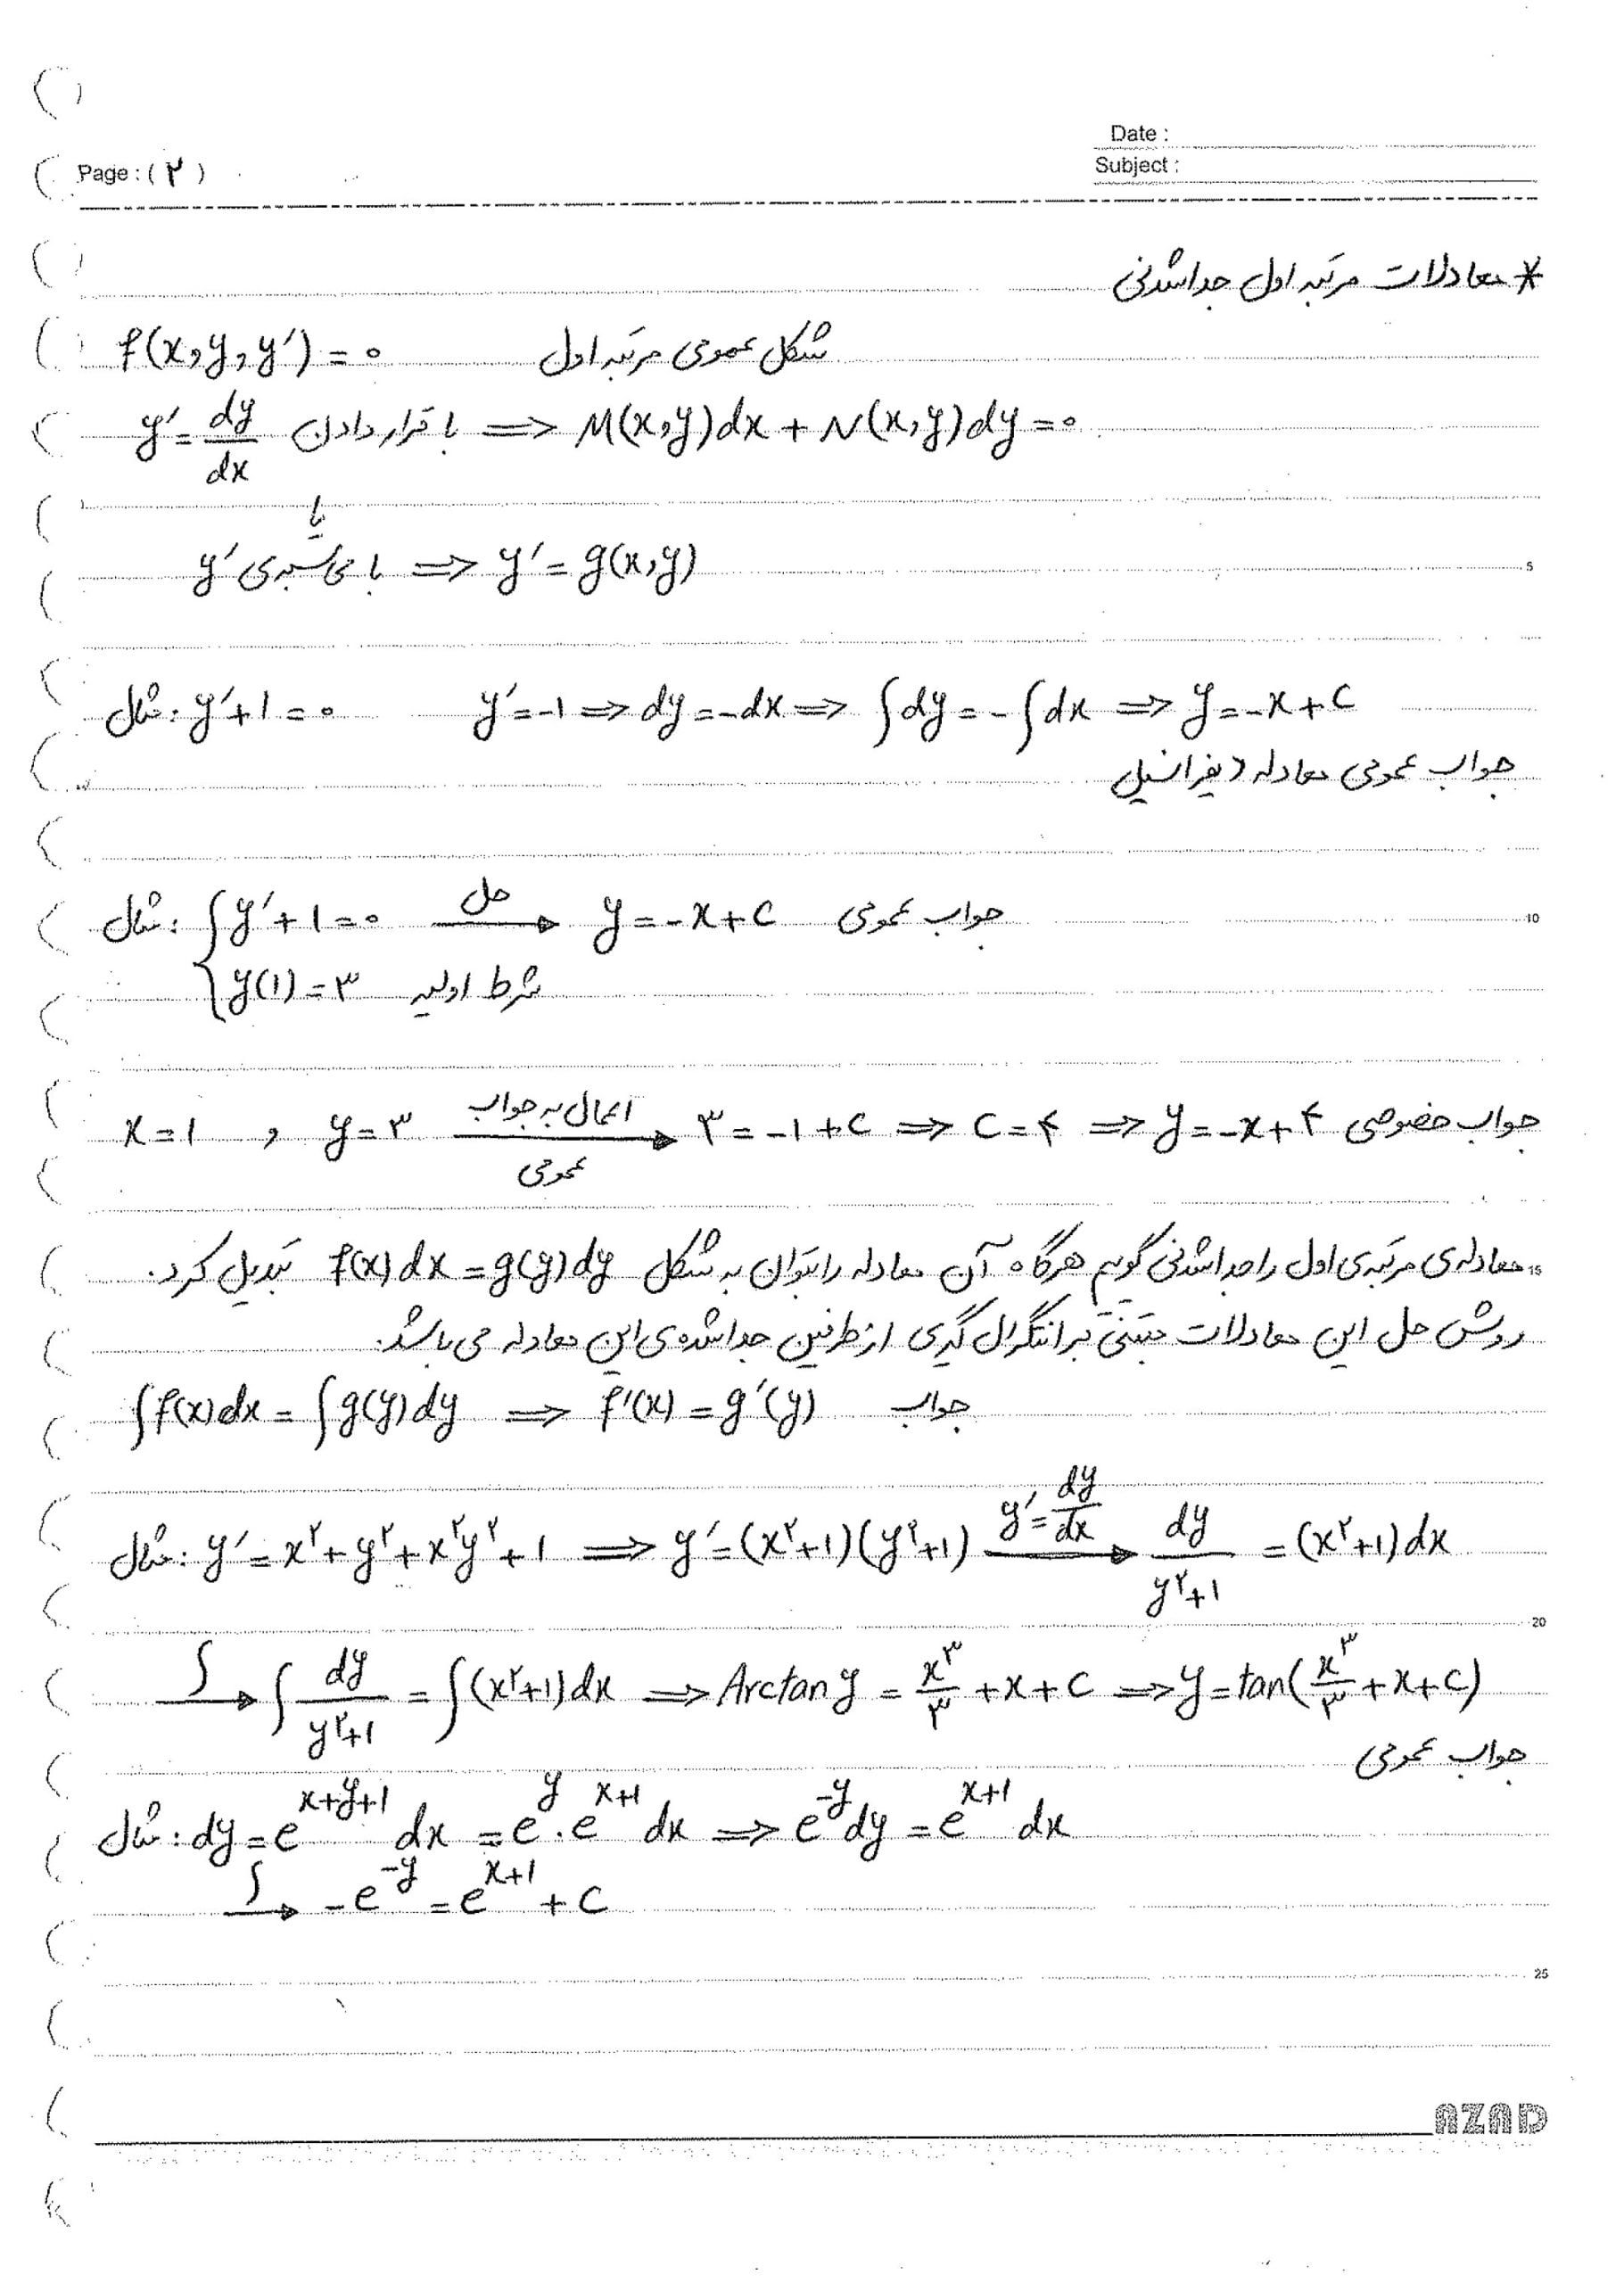 Date :
Page : ( ۲ )
Subject :
* معادلات مرتبه اول جداشدنی
f(x, y, y′) = ۰ شکل عمومی مرتبه اول
y′ = dy/dx با قرار دادن ⇒ M(x,y)dx + N(x,y)dy = ۰
یا
با محاسبه‌ی y′ ⇒ y′ = g(x,y)
5
مثال: y′+۱=۰ y′=-۱ ⇒ dy=-dx ⇒ ∫dy = -∫dx ⇒ y=-x+c
جواب عمومی معادله دیفرانسیل
مثال: { y′+۱=۰ حل → y=-x+c جواب عمومی
10
y(۱)=۳ شرط اولیه
x=۱ , y=۳ اعمال به جواب عمومی → ۳=-۱+c ⇒ c=۴ ⇒ y=-x+۴ جواب خصوصی
معادله‌ی مرتبه‌ی اول را جداشدنی گوییم هرگاه آن معادله را بتوان به شکل f(x)dx = g(y)dy تبدیل کرد.
15
روش حل این معادلات مبتنی بر انتگرال گیری از طرفین جداشده‌ی این معادله می باشد.
∫f(x)dx = ∫g(y)dy ⇒ f′(x) = g′(y) جواب
مثال: y′ = x^۲+y^۲+x^۲y^۲+۱ ⇒ y′=(x^۲+۱)(y^۲+۱) y′=dy/dx → dy/(y^۲+۱) = (x^۲+۱)dx
20
∫→ ∫ dy/(y^۲+۱) = ∫(x^۲+۱)dx ⇒ Arctan y = x^۳/۳ + x + c ⇒ y=tan(x^۳/۳ + x + c)
جواب عمومی
مثال: dy = e^(x+y+۱) dx = e^y . e^(x+۱) dx ⇒ e^(-y) dy = e^(x+۱) dx
∫→ -e^(-y) = e^(x+۱) + c
25
AZAD